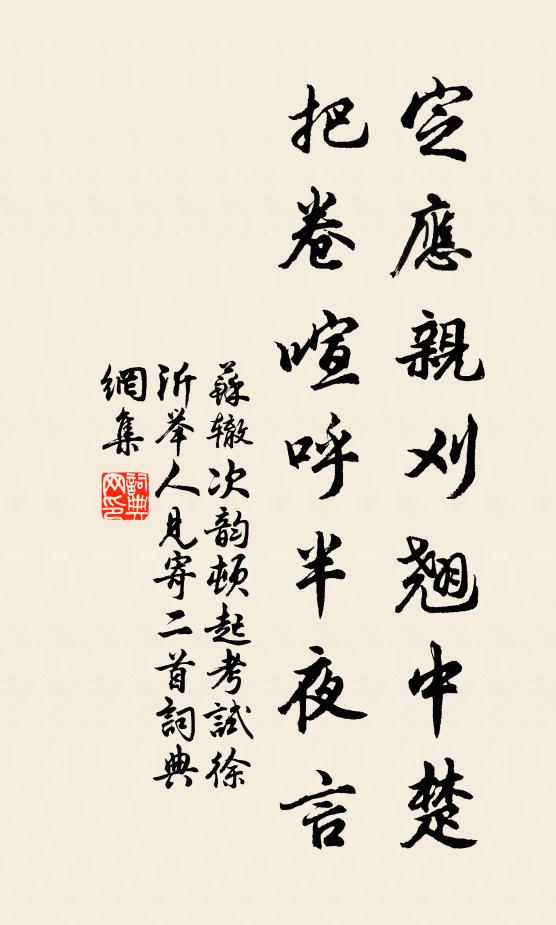 定應親刈翹中楚
把卷喧呼半夜言
蘇辙次韵頓起考試徐
沂举人見寄二首詞典
網集
詞典
网印